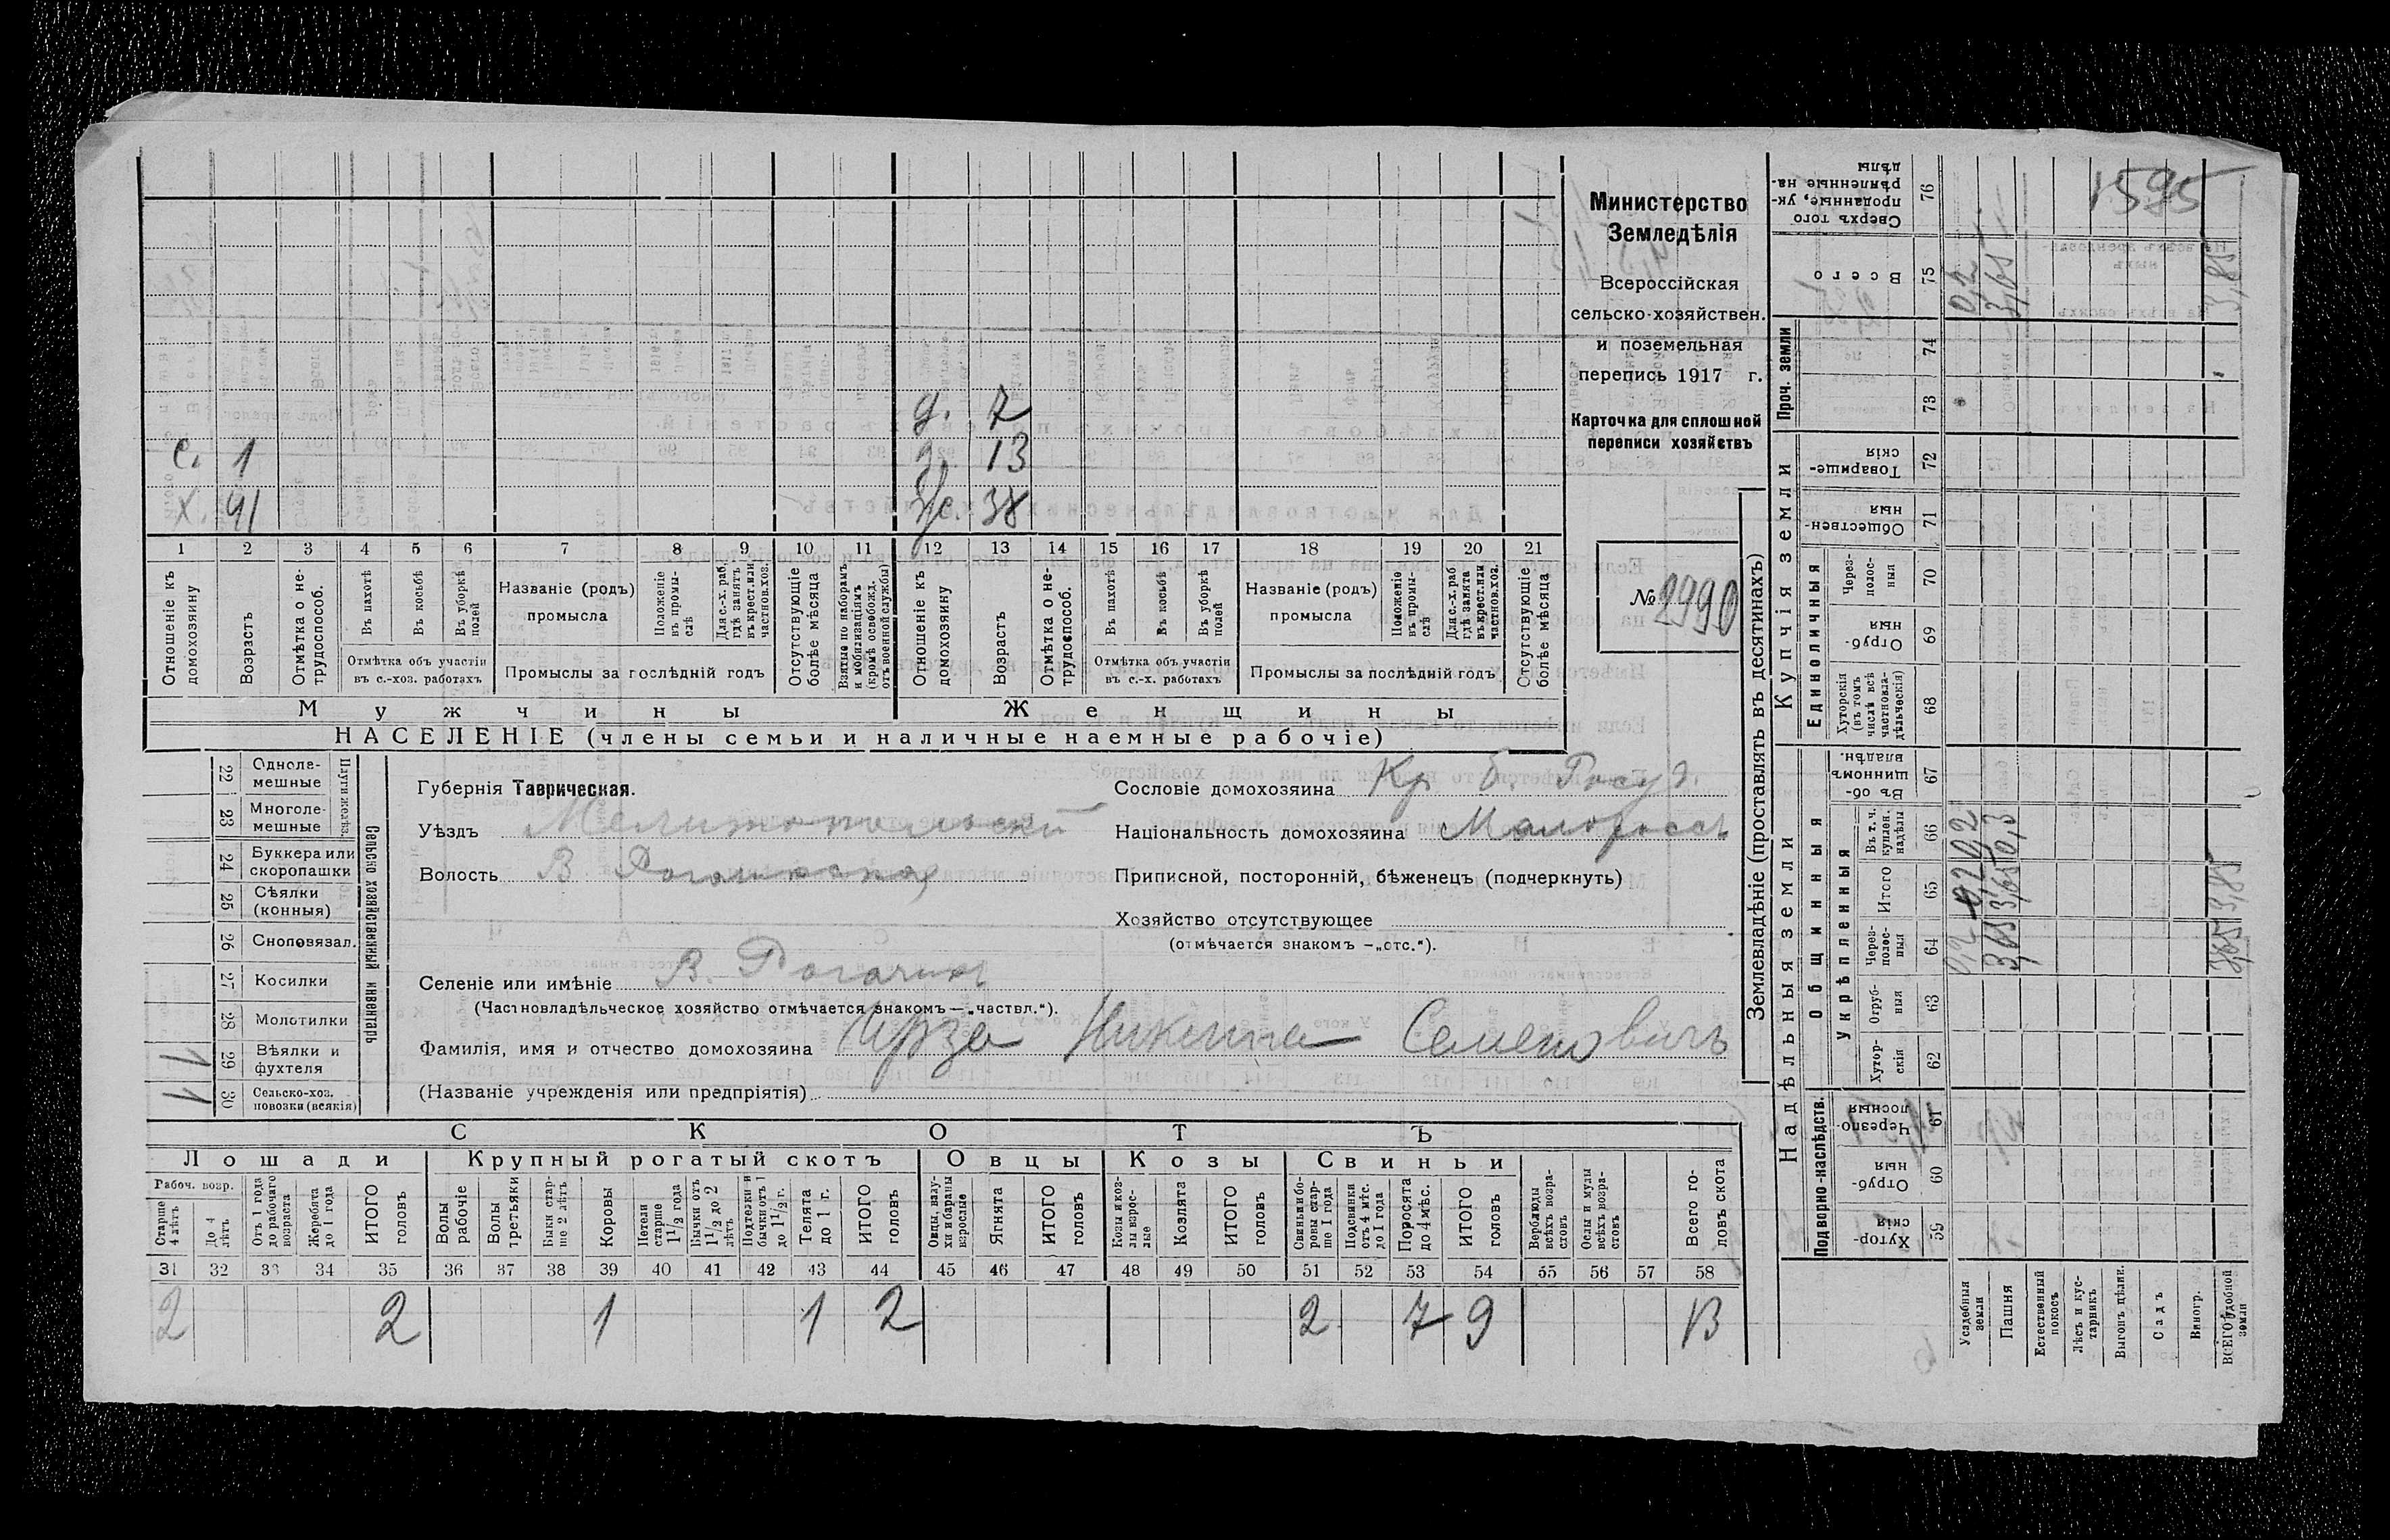 Министерство
Земледѣлія
Всероссійская
сельско-хозяйствен.
и поземельная
перепись 1917 г.
Карточка для сплошной
переписи хозяйствъ
№ 2990
1595
д. 7
с. 1 д. 13
х. 41 ж. 38
1 2 3 4 5 6 7 8 9 10 11 12 13 14 15 16 17 18 19 20 21
Отношеніе къ домохозяину
Возрастъ
Отмѣтка о не-трудоспособ.
Въ пахотѣ
Въ косьбѣ
Въ уборкѣ полей
Отмѣтка объ участіи
въ с.-хоз. работахъ
Названіе (родъ)
промысла
Положеніе въ промы-слѣ
Для с.-х. раб. гдѣ занятъ въ крест. или частнов. хоз.
Промыслы за послѣдній годъ
Отсутствующіе болѣе мѣсяца
Взятые по наборамъ и мобилизаціямъ (кромѣ освобожд. отъ военной службы)
Отношеніе къ домохозяину
Возрастъ
Отмѣтка о не-трудоспособ.
Въ пахотѣ
Въ косьбѣ
Въ уборкѣ полей
Отмѣтка объ участіи
въ с.-х. работахъ
Названіе (родъ)
промысла
Положеніе въ промы-слѣ
Для с.-х. раб. гдѣ занята въ крест. или частнов. хоз.
Промыслы за послѣдній годъ
Отсутствующіе болѣе мѣсяца
Мужчины Женщины
НАСЕЛЕНІЕ (члены семьи и наличные наемные рабочіе)
Сельско хозяйственный инвентарь
Плуги желѣз.
22 Однолемешные
23 Многолемешные
24 Буккера или скоропашки
25 Сѣялки (конныя)
26 Сноповязал.
27 Косилки
28 Молотилки
1 29 Вѣялки и фухтеля
1 30 Сельско-хоз. повозки (всякія)
Губернія Таврическая.
Уѣздъ Мелитопольскій
Волость В Рогачикская
Сословіе домохозяина Кр б. Госуд.
Національность домохозяина Малороссъ
Приписной, посторонній, бѣженецъ (подчеркнуть)
Хозяйство отсутствующее
(отмѣчается знакомъ —„отс.“).
Селеніе или имѣніе В. Рогачикъ
(Частновладѣльческое хозяйство отмѣчается знакомъ—„частвл.“).
Фамилія, имя и отчество домохозяина Ирза Никита Семеновичъ
(Названіе учрежденія или предпріятія)
СКОТЪ
Лошади Крупный рогатый скотъ Овцы Козы Свиньи
Рабоч. возр.
Старше 4 лѣтъ
До 4 лѣтъ
Отъ 1 года до рабочаго возраста
Жеребята до 1 года
ИТОГО головъ
Волы рабочіе
Волы третьяки
Быки старше 2 лѣтъ
Коровы
Нетели старше 1 1/2 года
Бычки отъ 1 1/2 до 2 лѣтъ
Подтелки и бычки отъ 1 до 1 1/2 г.
Телята до 1 г.
ИТОГО головъ
Овцы, валухи и бараны взрослые
Ягнята
ИТОГО головъ
Козы и козлы взрослые
Козлята
ИТОГО головъ
Свиньи боровы старше 1 года
Подсвинки отъ 4 мѣс. до 1 года
Поросята до 4 мѣс.
ИТОГО головъ
Верблюды всѣхъ возрастовъ
Ослы и мулы всѣхъ возрастовъ
Всего головъ скота
31 32 33 34 35 36 37 38 39 40 41 42 43 44 45 46 47 48 49 50 51 52 53 54 55 56 57 58
2 2 1 1 2 2 7 9 13
Землевладѣніе (проставлять въ десятинахъ)
Надѣльныя земли
Купчія земли
Проч. земли
Подворно-наслѣдств.
Общинныя
Укрѣпленныя
Единоличныя
Хуторскія 59
Отрубныя 60
Черезполосныя 61
Хуторскія 62
Отрубныя 63
Черезполосныя 64 0,2 3,65 3,85
Итого 65 0,2 3,65 3,85
Въ т. ч. куплен. надѣлы 66 0,2 0,3
Въ общинномъ владѣн. 67
Хуторскія (въ томъ числѣ всѣ частновладѣльческія) 68
Отрубныя 69
Черезполосныя 70
Общественныя 71
Товарищескія 72
73
74
Всего 75 0,2 3,65 3,85
Сверхъ того проданные, укрѣпленные надѣлы 76
Усадебныя земли
Пашня
Естественный покосъ
Лѣсъ и кустарникъ
Выгонъ цѣлин.
Садъ
Виногр.
ВСЕГО удобной земли